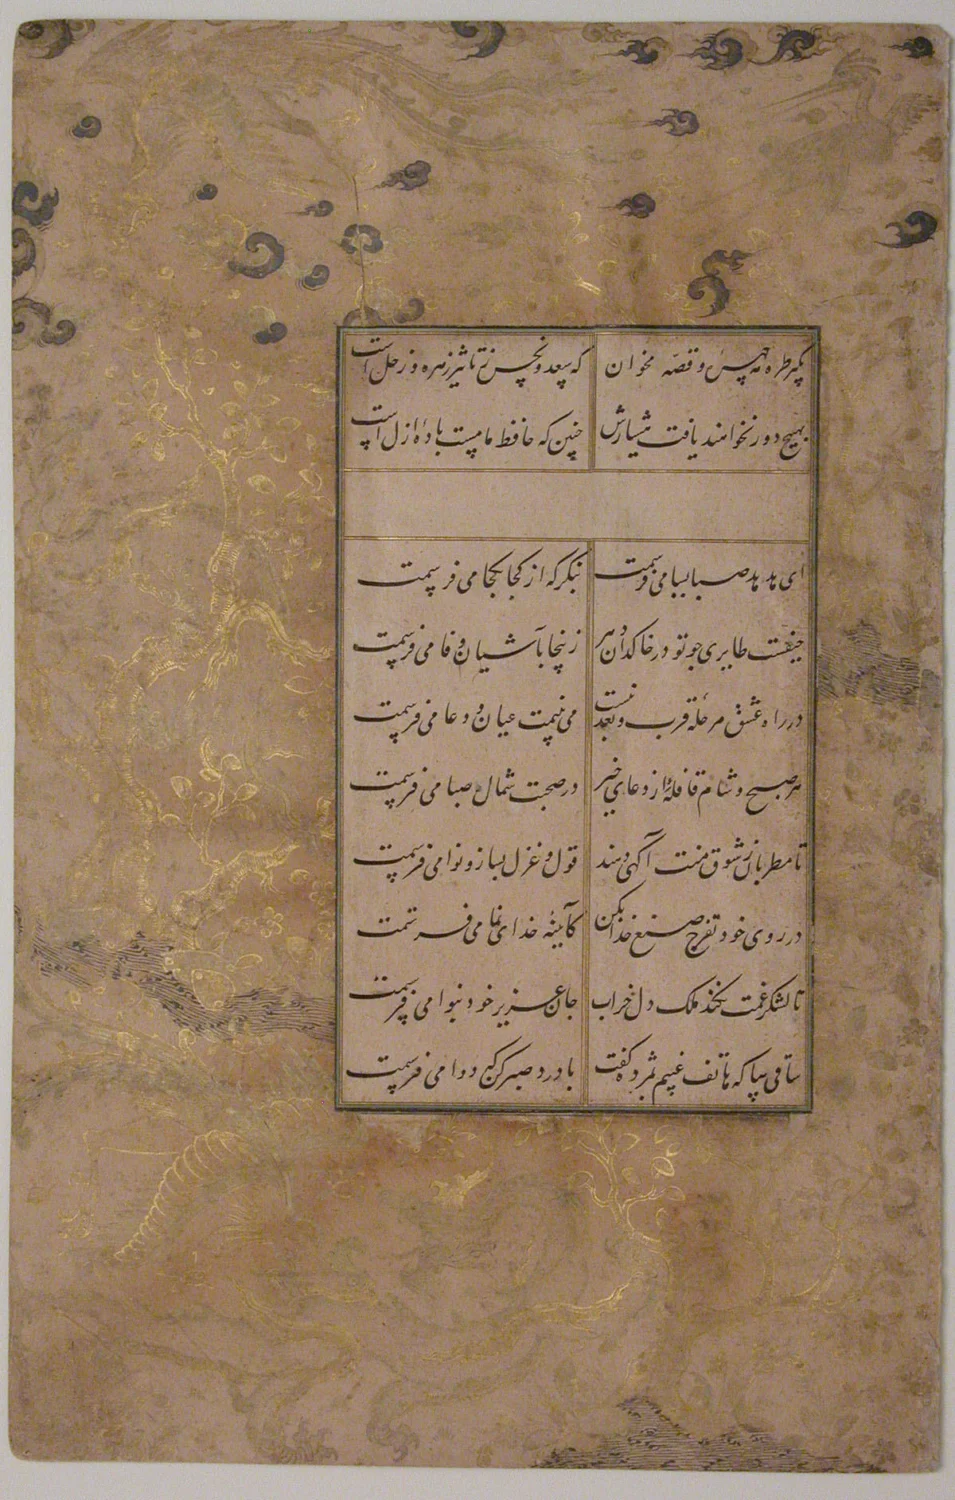 بگیر طره مه چهره و قصه مخوان
که سعد و نحس ز تاثیر زهره و زحل است
بهیچ دور نخواهند یافت هشیارش
چنین که حافظ ما مست باده ازل است
ای هدهد صبا بسبا می فرستمت
بنگر که از کجا بکجا می فرستمت
حیفست طایری چو تو در خاکدان دهر
زینجا بآشیان وفا می فرستمت
در راه عشق مرحله قرب و بعد نیست
می بینمت عیان و دعا می فرستمت
هر صبح و شام قافلهٔ از دعای خیر
در صحبت شمال و صبا می فرستمت
تا مطربان ز شوق منت آگهی دهند
قول و غزل بساز و نوا می فرستمت
در روی خود تفرج صنع خدا بکن
کآیینهٔ خدای نما می فرستمت
تا لشکر غمت نکند ملک دل خراب
جان عزیز خود بنوا می فرستمت
ساقی بیا که هاتف غیبم بمژده گفت
با درد صبر کن که دوا می فرستمت